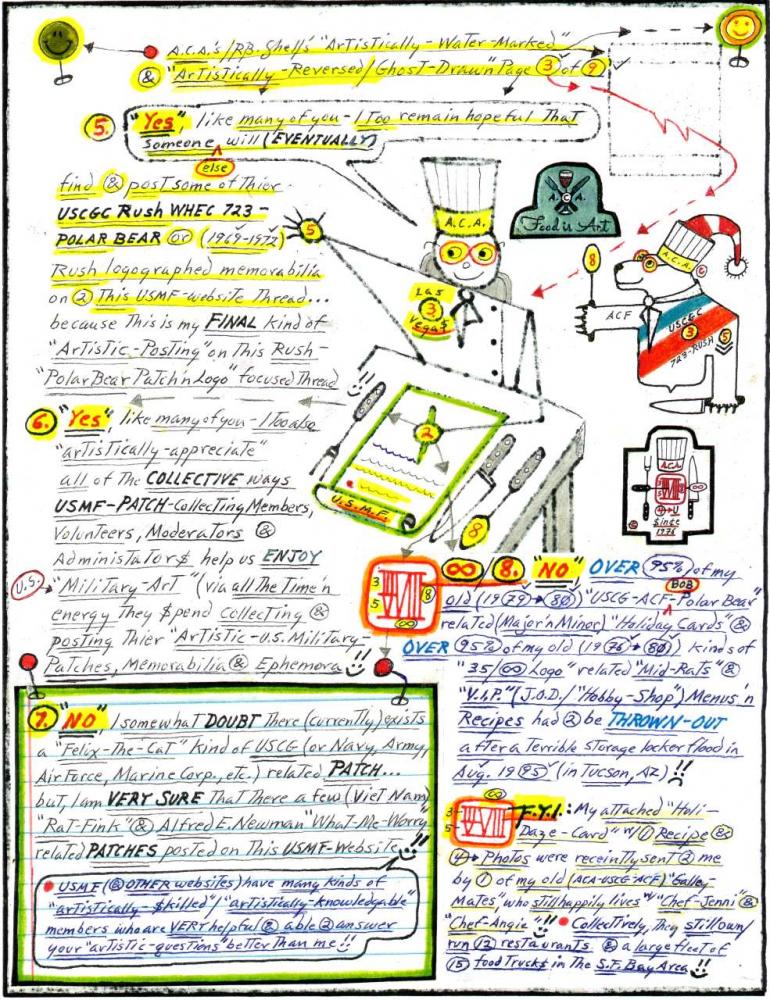 A.C.A.'s/RB. Shell's "ArTisTically-WaTer-Marked"
& "ArTisTically-Reversed/GhosT-Drawn" Page 3 of 9
5. "Yes", like many of you - I Too remain hopeful ThaT
Someone will (EVENTUALLY)
else
find & posT some of Thier
USCGC Rush WHEC 723 -
POLAR BEAR or (1969-1972)
Rush logographed memorabilia
on 2 This USMF-website Thread...
because This is my FINAL kind of
"ArTisTic-PosTing" on This Rush-
"Polar Bear PaTch n Logo" focused Thread
!!
5
A.C.A.
Las
3
Vega$
A. C. A.
Food is Art
8
A.C.A.
ACF
USCGC
3
723-RUSH
5
2
U.S.M.F.
8
A.C.A.
VIII
Since
1976
6. "Yes", like many of you - I Too also
"arTisTically-appreciaTe"
all of The COLLECTIVE ways
USMF-PATCH-CollecTing Members,
VolunTeers, ModeraTors &
AdminisTaTor$ help us ENJOY
U.S. "MiliTary-ArT" (via all The Time 'n
energy They $pend collecTing &
posTing Thier "ArTisTic-U.S. MiliTary-
PaTches, Memorabilia & Ephemora !!
7. "NO", I somewhaT DOUBT There (currenTly) exisTs
a "Felix-The-CaT" kind of USCG (or Navy, Army,
Air Force, Marine Corp., eTc.) relaTed PATCH...
buT, I am VERY SURE ThaT There a few (VieT Nam)
"RaT-Fink" & Alfred E. Newman "WhaT-Me-Worry
relaTed PATCHES posTed on This USMF-WebsiTe !!
USMF (& OTHER websiTes) have many kinds of
"arTisTically-$killed"/"arTisTically-knowledgable"
members who are VERY helpful & able 2 answer
your "arTisTic-quesTions" beTTer Than me !!
3
5
VIII
8
∞
∞/8. "NO" OVER 95% of my
BOB
old (1979→80) "USCG-ACF-Polar Bear"
relaTed (Major 'n Minor) "Holiday Cards" &
OVER 95% of my old (1976→80) kinds of
"35/∞ Logo" relaTed "Mid-RaTs" &
"V.I.P." (J.O.D./"Hobby-Shop") Menus 'n
Recipes had 2 be THROWN-OUT
afTer a Terrible sTorage locker flood in
Aug. 1995 (in Tucson, AZ) !!
∞
3
5
VIII
F.Y.I.: My aTTached "Holi-
Daze-Card" w/1 Recipe &
4→ PhoTos were receinTly senT 2 me
by 1 of my old (ACA-USCG-ACF) "Galley-
MaTes", who sTill happily lives w/ "Chef-Jenni" &
"Chef-Angie" !! CollecTively, They sTill own/
run 12 resTauranTs & a large fleeT of
15 food Truck$ in The S.F. Bay Area !!